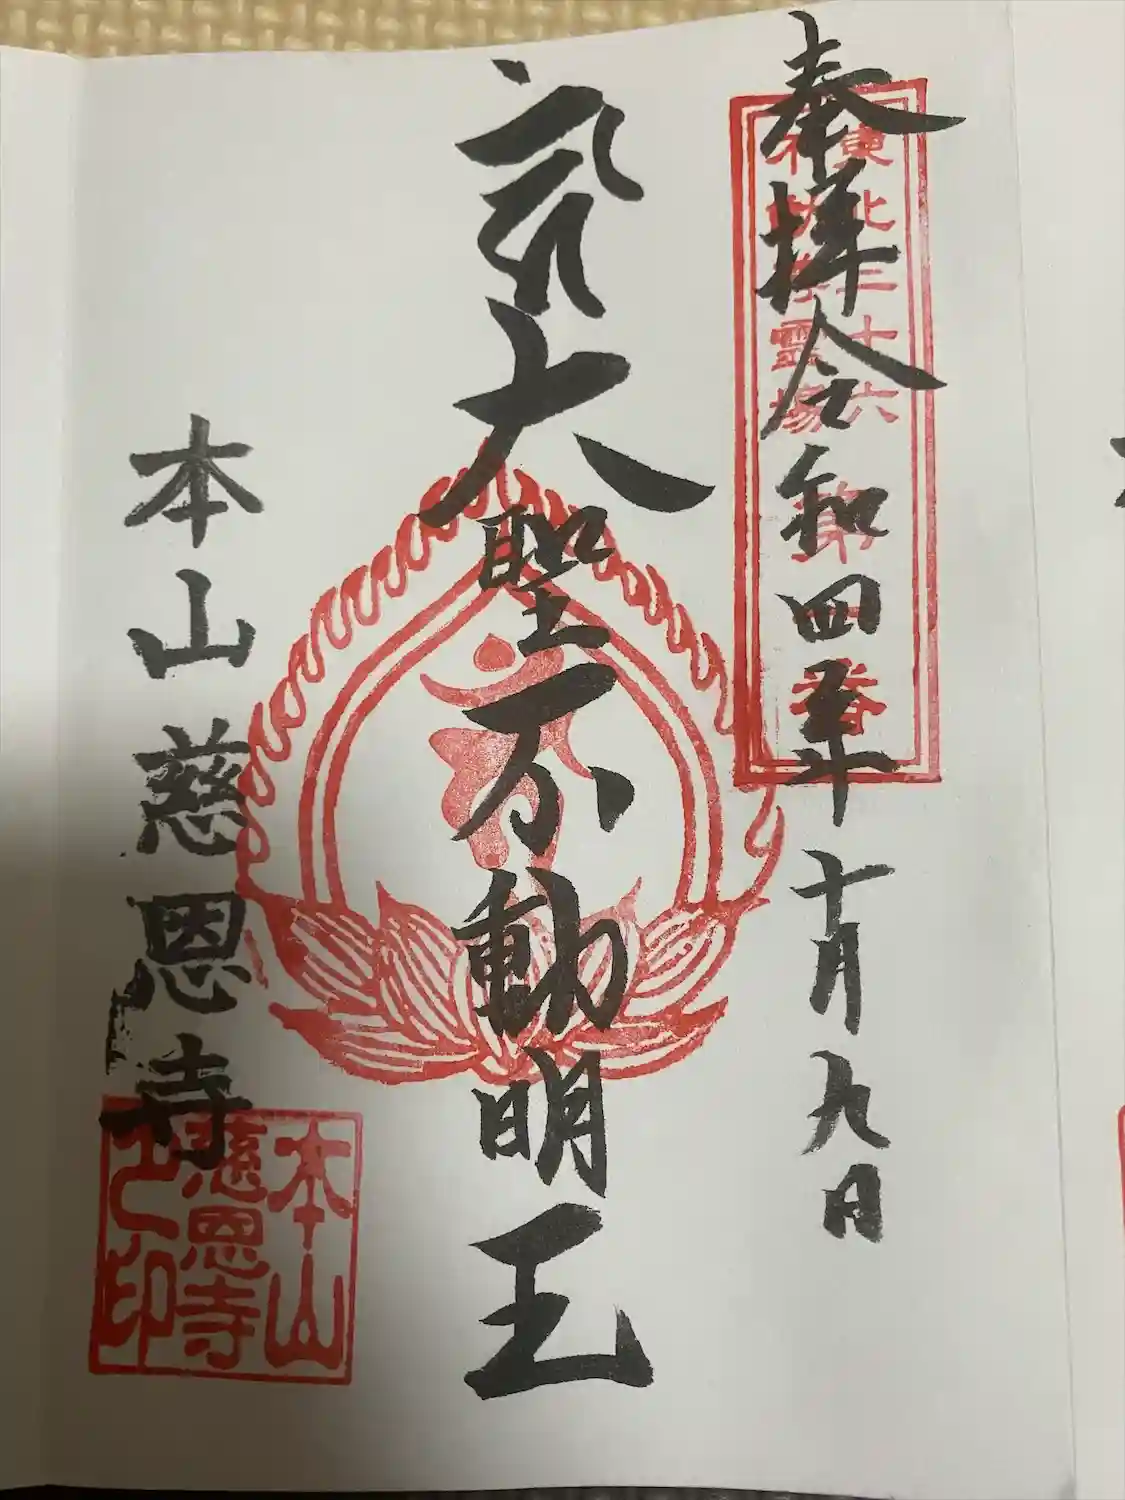 奉拝 令和四年十月九日
東北三十六
不動尊霊場
第 番
大聖不動明王
本山慈恩寺
本山
慈恩寺
之印